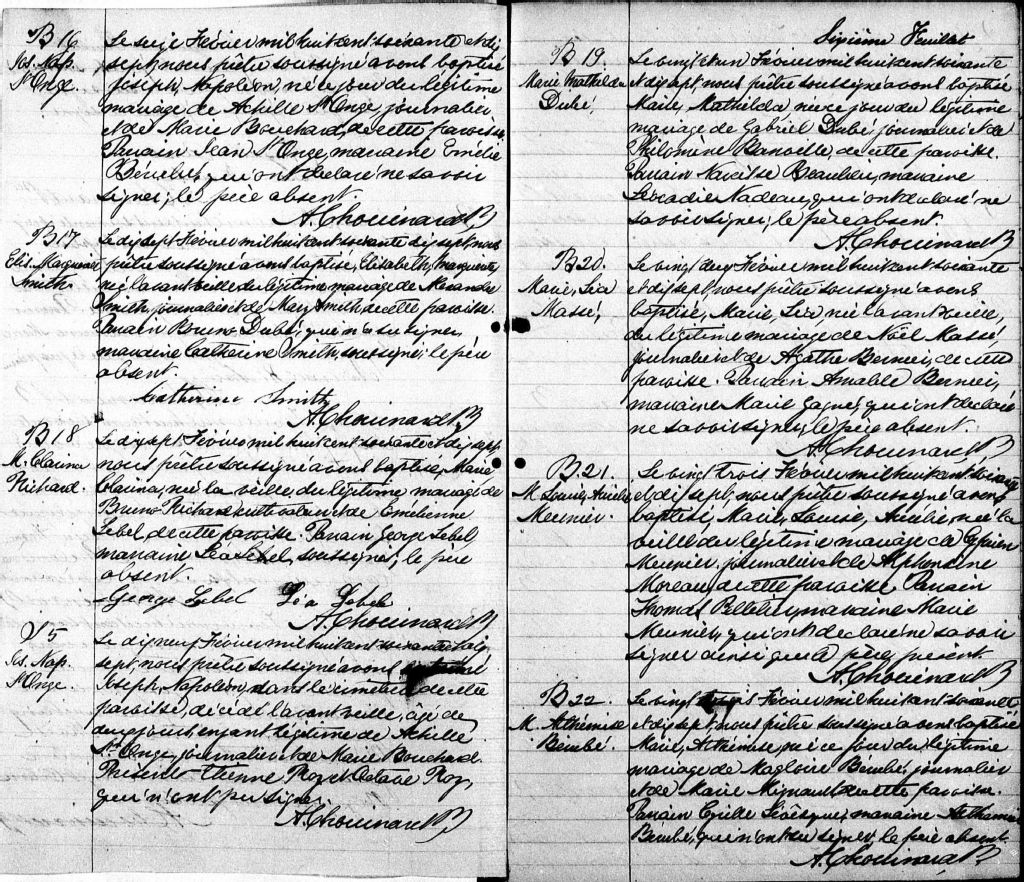 B 16
Jos. Nap.
St Onge.
Le seize Février mil huit cent soixante et dix
sept, nous prêtre soussigné avons baptisé
Joseph, Napoléon, né ce jour du légitime
mariage de Achille St Onge, journalier
et de Marie Bouchard, de cette paroisse.
Parrain Jean St Onge, marraine Emélie
Bérubé, qui ont déclaré ne savoir
signer, le père absent.
A. Chouinard Ptr
B 17
Elis. Marguerite
Smith.
Le dix sept Février mil huit cent soixante dix sept, nous
prêtre soussigné avons baptisé, Elisabeth, Marguerite
née l'avant veille du légitime mariage de Alexandre
Smith, journalier et de Mary Smith de cette paroisse.
Parrain Bruno Dubé, qui n'a su signer,
marraine Catherine Smith, soussigné; le père
absent.
Catherine Smith
A. Chouinard Ptr
B 18
M. Clarina
Richard.
Le dix sept Février mil huit cent soixante et dix sept,
nous prêtre soussigné avons baptisé, Marie
Clarina, née la veille, du légitime mariage de
Bruno Richard, cultivateur et de Emélienne
Lebel de cette paroisse. Parrain George Lebel
marraine Léa Lebel, soussignés, le père
absent.
George Lebel Léa Lebel
A. Chouinard Ptr
S 5
Jos. Nap.
St Onge.
Le dix neuf Février mil huit cent soixante et dix
sept, nous prêtre soussigné avons
Joseph, Napoléon, dans le cimetière de cette
paroisse, décédé l'avant veille, âgé de
deux jours, enfant légitime de Achille
St Onge, journalier et de Marie Bouchard.
Présents Etienne Roy et Octave Roy,
qui n'ont pu signer.
A. Chouinard Ptr
Sixième Feuillet
B 19.
Marie Mathilda
Dubé,
Le vingt et un Février mil huit cent soixante
et dix sept, nous prêtre soussigné avons baptisé
Marie, Mathilda née ce jour du légitime
mariage de Gabriel Dubé, journalier et de
Philomène Banville, de cette paroisse.
Parrain Narcisse Beaulieu, marraine
Léocadie Nadeau, qui ont déclaré ne
savoir signer, le père absent.
A. Chouinard Ptr
B 20.
Marie, Léa
Massé,
Le vingt deux Février mil huit cent soixante
et dix sept, nous prêtre soussigné avons
baptisé, Marie, Léa née l'avant veille,
du légitime mariage de Noël Massé,
journalier et de Agathe Bernier, de cette
paroisse. Parrain Amable Bernier,
marraine Marie Gagné, qui ont déclaré
ne savoir signer, le père absent.
A. Chouinard Ptr
B 21.
M. Louise, Aurélie
Meunier.
Le vingt trois Février mil huit cent soixante
et dix sept, nous prêtre soussigné avons
baptisé, Marie, Louise, Aurélie, née la
veille du légitime mariage de Cyprien
Meunier, journalier et de Alphonsine
Moreau, de cette paroisse. Parrain
Thomas Pelletier, marraine Marie
Meunier, qui ont déclaré ne savoir
signer ainsi que le père, présent
A. Chouinard Ptr
B 22.
M. Arthémise
Bérubé.
Le vingt trois Février mil huit cent soixante
et dix sept, nous prêtre soussigné avons baptisé
Marie, Arthémise, née ce jour du légitime
mariage de Magloire Bérubé, journalier
et de Marie Mignault de cette paroisse.
Parrain Cyrille Lévêque, marraine
Bérubé, qui n'ont su signer, le père absent.
A. Chouinard Ptr